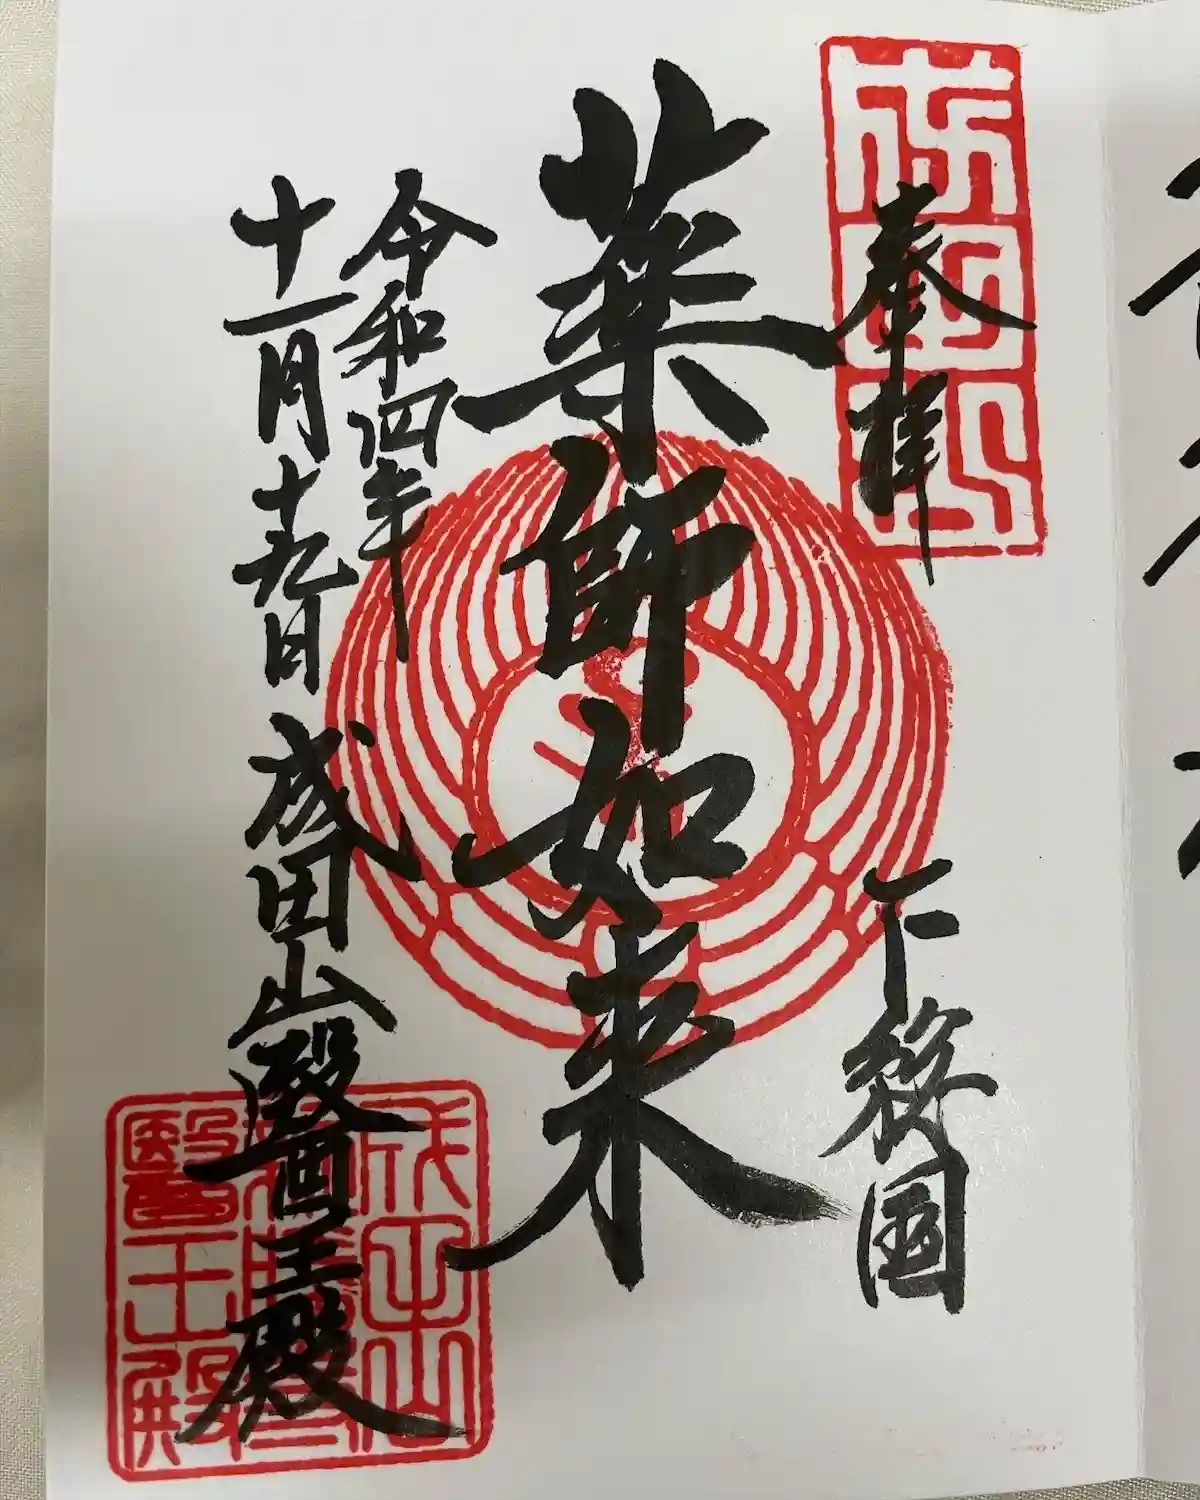 成田山
奉拝
下総国
薬師如来
令和四年
十一月十九日 成田山醫王殿
成田山
醫王殿